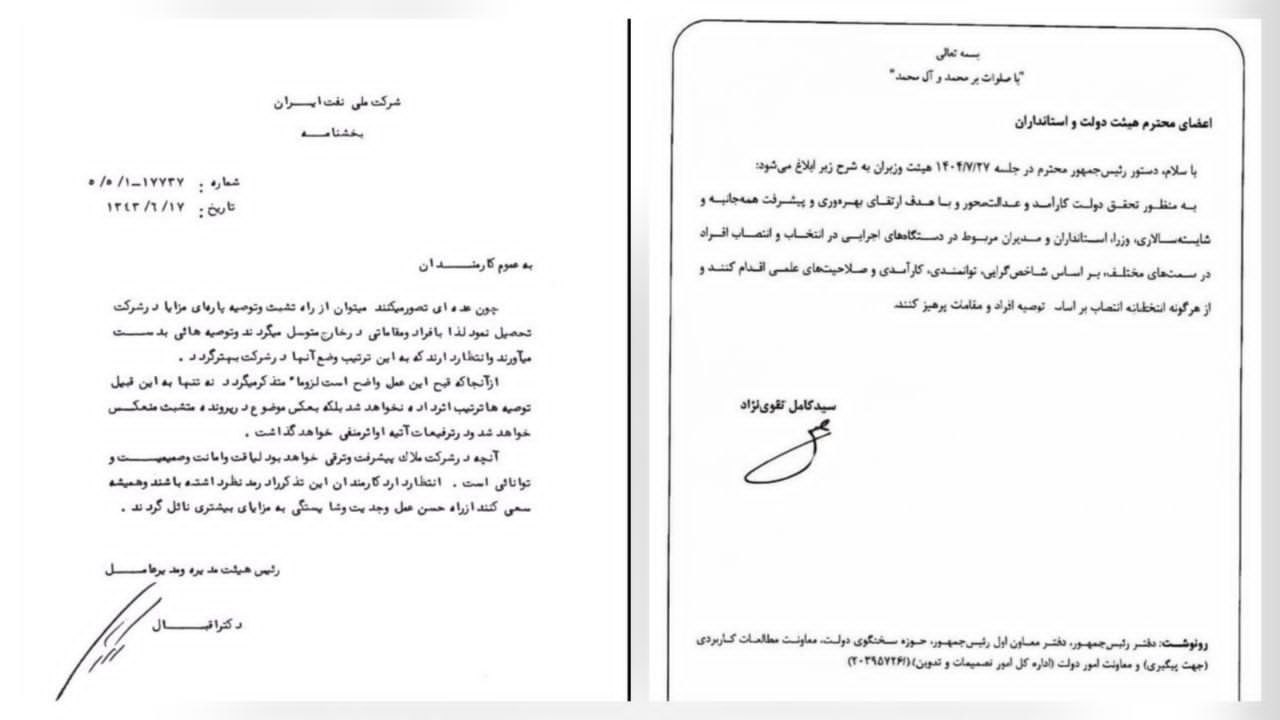 بسمه تعالی
"با صلوات بر محمد و آل محمد"
اعضای محترم هیئت دولت و استانداران
با سلام، دستور رئیس‌جمهور محترم در جلسه ۱۴۰۴/۷/۲۷ هیئت وزیران به شرح زیر ابلاغ می‌شود:
به منظور تحقق دولت کارآمد و عدالت‌محور و با هدف ارتقای بهره‌وری و پیشرفت همه‌جانبه و
شایسته‌سالاری، وزرا، استانداران و مدیران مربوط در دستگاه‌های اجرایی در انتخاب و انتصاب افراد
در سمت‌های مختلف، بر اساس شاخص‌گرایی، توانمندی، کارآمدی و صلاحیت‌های علمی اقدام کنند و
از هرگونه انتصاب بر توصیه افراد و مقامات پرهیز کنند.
سیدکامل تقوی‌نژاد
رونوشت: دفتر رئیس‌جمهور، دفتر معاون اول رئیس‌جمهور، حوزه سخنگوی دولت، معاونت مطالعات کاربردی
(جهت پیگیری) و معاونت امور دولت (اداره کل امور تصمیمات و تدوین) (/۲۰۳۹۵۷۲۶)
شرکت ملی نفت ایران
بخشنامه
شماره : ۵/۵/۱-۱۷۷۳۷
تاریخ : ۱۳۴۳/۶/۱۷
به عموم کارمندان
چون عده ای تصورمیکنند میتوان از راه تشبث وتوصیه پاره‌ای مزایا درشرکت
تحصیل نمود لذا بافراد ومقاماتی درخارج متوسل میگردند وتوصیه هائی بدست
میآورند وانتظاردارند که به این ترتیب وضع آنها درشرکت بهترگردد .
ازآنجاکه قبح این عمل واضح است لزوماً متذکرمیگردد نه تنها به این قبیل
توصیه ها ترتیب اثرداده نخواهد شد بلکه بعکس موضوع درپرونده متشبث منعکس
خواهد شد ودرترفیعات آتیه او اثرمنفی خواهد گذاشت .
آنچه درشرکت ملاک پیشرفت وترقی خواهد بود لیاقت وامانت وصمیمیت و
توانائی است . انتظاردارد کارمندان این تذکررادر مدنظرداشته باشند وهمیشه
سعی کنند ازراه حسن عمل وجدیت وشایستگی به مزایای بیشتری نائل گردند .
رئیس هیئت مدیره ومدیرعامل
دکتراقبال